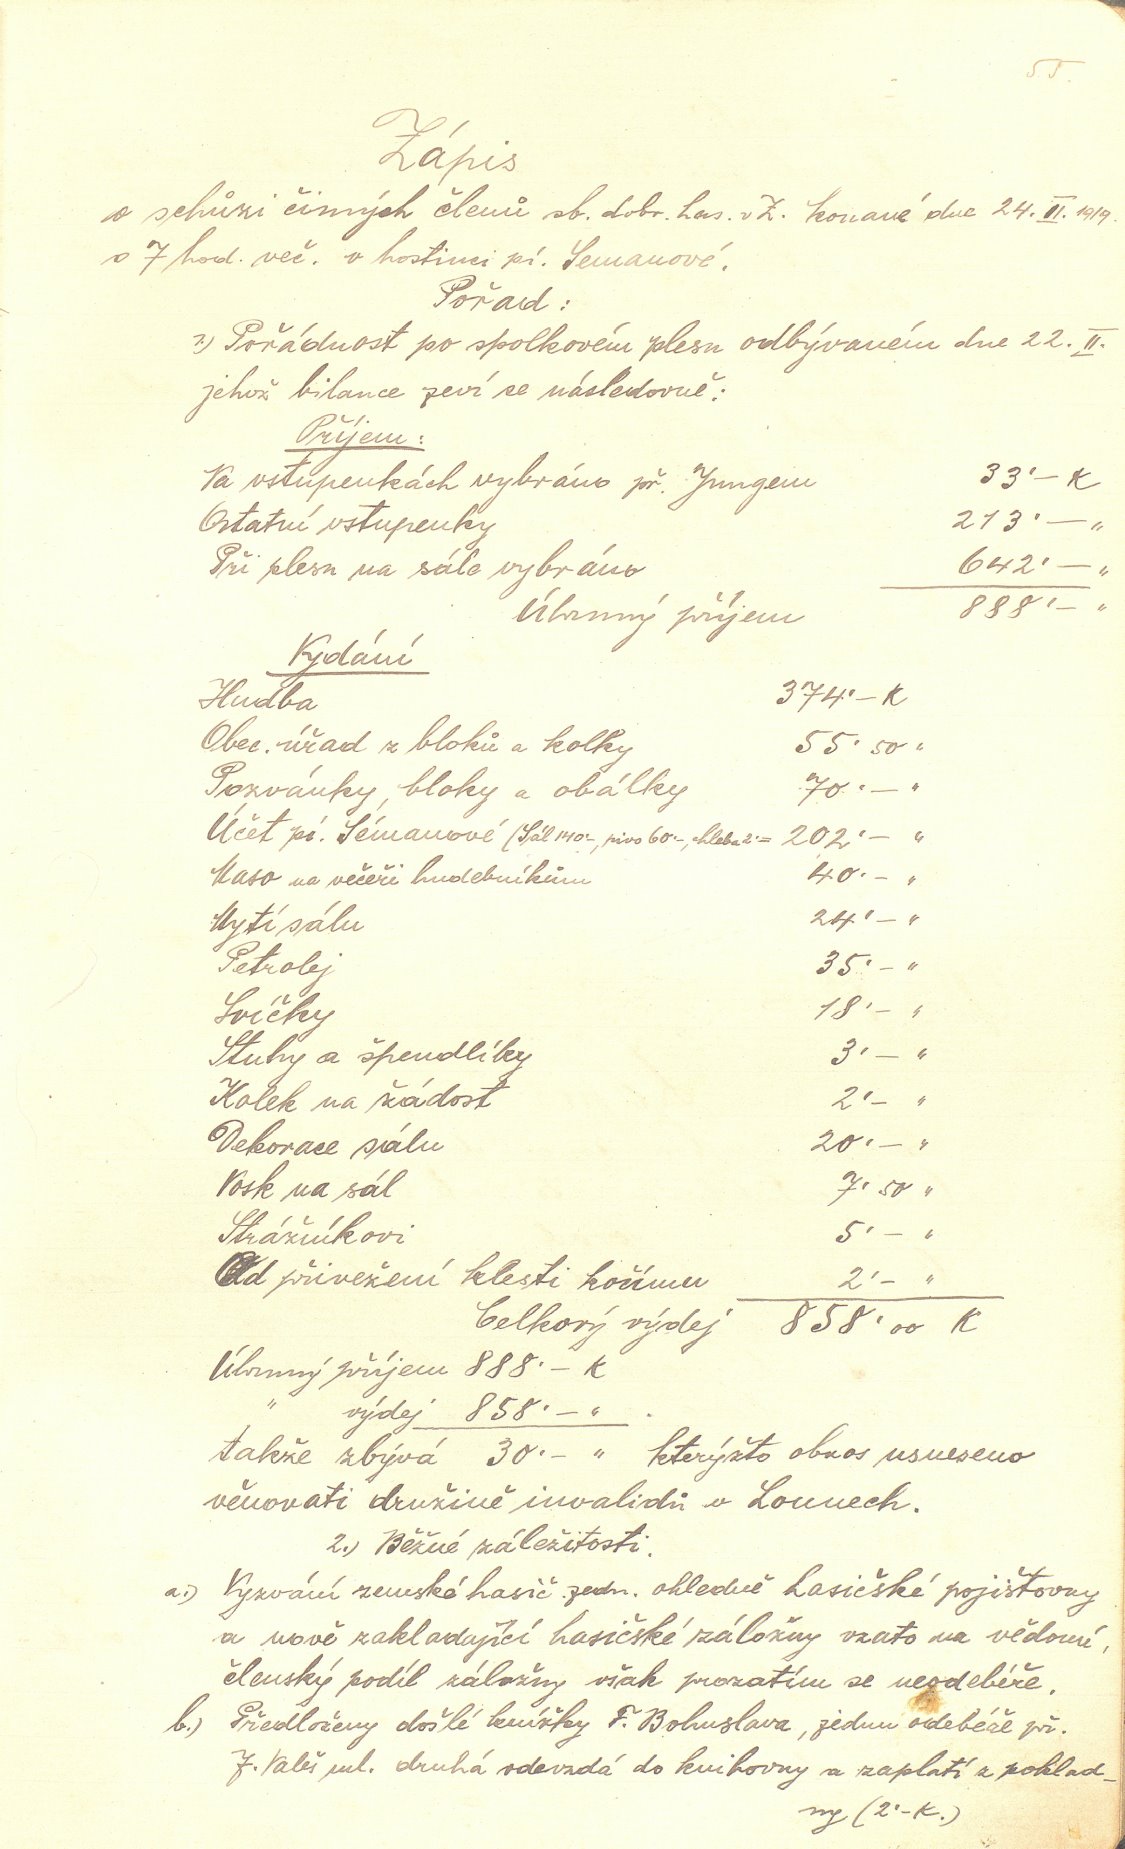 55.
Zápis
o schůzi činných členů sb. dobr. has. v Ž. konané dne 24. II. 1919.
o 7 hod. več. v hostinci pí. Semanové.
Pořad:
1.) Pořádnost po spolkovém plesu odbývaném dne 22. II.
jehož bilance jeví se následovně:
Příjem:
Na vstupenkách vybráno př. Jungem 33·— K
Ostatní vstupenky 213·— "
Při plesu na sále vybráno 642·— "
Úhrnný příjem 888·— "
Vydání
Hudba 374·— K
Obec. úřad z bloků a kolky 55·50 "
Pozvánky, bloky a obálky 70·— "
Účet pí. Sémanové (Sál 140·—, pivo 60·—, chleba 2·= 202·— "
Maso na večeři hudebníkům 40·— "
Mytí sálu 24·— "
Petrolej 35·— "
Svíčky 18·— "
Stuhy a špendlíky 3·— "
Kolek na žádost 2·— "
Dekorace sálu 20·— "
Vosk na sál 7·50 "
Strážníkovi 5·— "
Od přivežení klestí kočímu 2·— "
Celkový výdej 858·00 K
Úhrnný příjem 888·— K
" výdej 858·— "
takže zbývá 30·— " kterýžto obnos usneseno
věnovati družině invalidů v Lounech.
2.) Běžné záležitosti.
a.) Vyzvání zemské hasič. jedn. ohledně hasičské pojišťovny
a nově zakladající hasičské záložny vzato na vědomí,
členský podíl záložny však prozatím se neodebéře.
b.) Předloženy došlé knížky F. Bohuslava, jednu odebéře př.
J. Valeš ml. druhá odevzdá do knihovny a zaplatí z poklad-
ny (2·— K.)